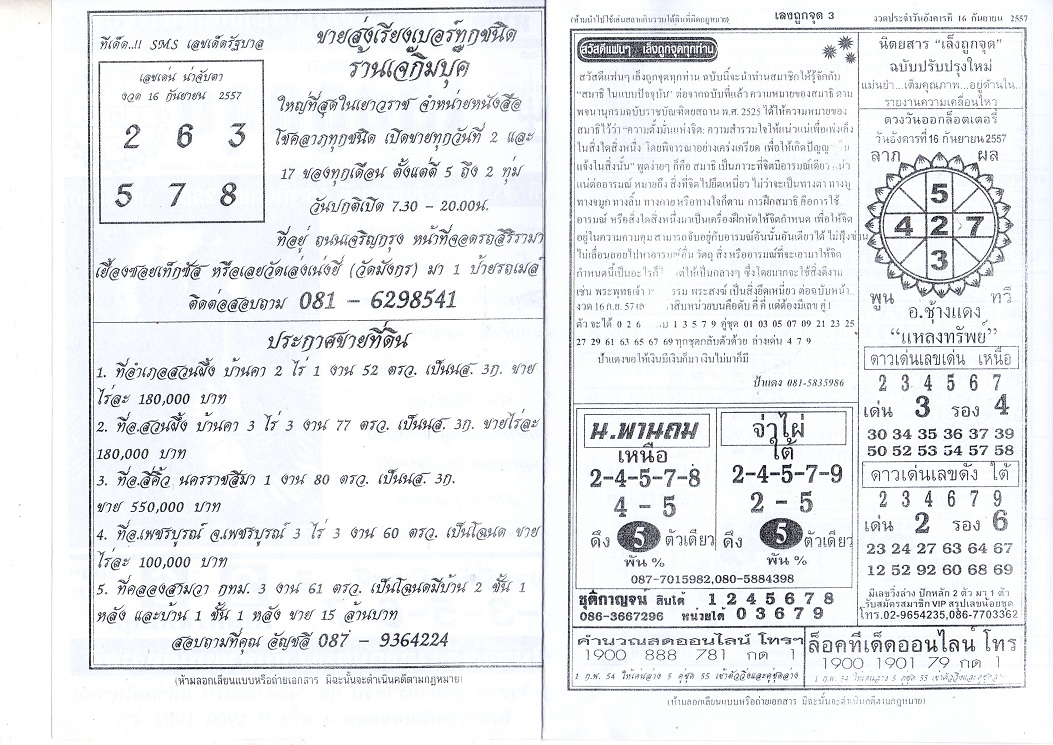 ทีเด็ด..!! SMS เลขเด็ดรัฐบาล
เลขเด่น น่าจับตา
งวด 16 กันยายน 2557
2 6 3
5 7 8
ขายส่งเรียงเบอร์ทุกชนิด
ร้านเจ๊กิมบุ๊ค
ใหญ่ที่สุดในเยาวราช จำหน่ายหนังสือ
โชคลาภทุกชนิด เปิดขายทุกวันที่ 2 และ
17 ของทุกเดือน ตั้งแต่ตี 5 ถึง 2 ทุ่ม
วันปกติเปิด 7.30 - 20.00น.
ที่อยู่ ถนนเจริญกรุง หน้าที่จอดรถสิริรามา
เยื้องซอยเท็กซัส หรือเลยวัดเล่งเน่งยี่ (วัดมังกร) มา 1 ป้ายรถเมล์
ติดต่อสอบถาม 081 - 6298541
ประกาศขายที่ดิน
1. ที่อำเภอสวนผึ้ง บ้านคา 2 ไร่ 1 งาน 52 ตรว. เป็นนส. 3ก. ขาย
ไร่ละ 180,000 บาท
2. ที่อ.สวนผึ้ง บ้านคา 3 ไร่ 3 งาน 77 ตรว. เป็นนส. 3ก. ขายไร่ละ
180,000 บาท
3. ที่อ.สีคิ้ว นครราชสีมา 1 งาน 80 ตรว. เป็นนส. 3ก.
ขาย 550,000 บาท
4. ที่อ.เพชรบูรณ์ จ.เพชรบูรณ์ 3 ไร่ 3 งาน 60 ตรว. เป็นโฉนด ขาย
ไร่ละ 100,000 บาท
5. ที่คลองสามวา กทม. 3 งาน 61 ตรว. เป็นโฉนดมีบ้าน 2 ชั้น 1
หลัง และบ้าน 1 ชั้น 1 หลัง ขาย 15 ล้านบาท
สอบถามที่คุณ อัญชลี 087 - 9364224
(ห้ามลอกเลียนแบบหรือถ่ายเอกสาร มิฉะนั้นจะดำเนินคดีตามกฎหมาย)
(ห้ามนำไปใช้เล่นสลากกินรวบใต้ดินที่ผิดกฎหมาย) เลงถูกจุด 3 งวดประจำวันอังคารที่ 16 กันยายน 2557
สวัสดีแฟนๆ เล็งถูกจุดทุกท่าน
สวัสดีแฟนๆ เล็งถูกจุดทุกท่าน ฉบับนี้จะนำท่านสมาชิกให้รู้จักกับ
"สมาธิ ในแบบปัจจุบัน" ต่อจากฉบับที่แล้ว ความหมายของสมาธิ ตาม
พจนานุกรมฉบับราชบัณฑิตยสถาน พ.ศ. 2525 ได้ให้ความหมายของ
สมาธิไว้ว่า "ความตั้งมั่นแห่งจิต; ความสำรวมใจให้แน่วแน่เพื่อเพ่งเล็ง
ในสิ่งใดสิ่งหนึ่ง โดยพิจารณาอย่างเคร่งเครียด เพื่อให้เกิดปัญญา
แจ้งในสิ่งนั้น" พูดง่ายๆ ก็คือ สมาธิ เป็นภาวะที่จิตมีอารมณ์เดียว
แน่ต่ออารมณ์ หมายถึง สิ่งที่จิตไปยึดเหนี่ยว ไม่ว่าจะเป็นทางตา ทางหู
ทางจมูก ทางลิ้น ทางกาย หรือทางใจก็ตาม การฝึกสมาธิ คือการใช้
อารมณ์ หรือสิ่งใดสิ่งหนึ่งมาเป็นเครื่องฝึกหัดให้จิตกำหนด เพื่อให้จิต
อยู่ในความควบคุม สามารถจับอยู่กับอารมณ์อันนั้นอันเดียวได้ ไม่ฟุ้งซ่าน
ไม่เลื่อนลอยไปหาอารมณ์อื่น วัตถุ สิ่ง หรืออารมณ์ที่จะเอามาให้จิต
กำหนดนี้เป็นอะไรก็ ให้เป็นกลางๆ ซึ่งโดยมากจะใช้สิ่งดีงาม
เช่น พระพุทธเจ้า ธรรม พระสงฆ์ เป็นสิ่งยึดเหนี่ยว ต่อฉบับหน้า..
งวด 16 ก.ย. 57 สิบหน่วยบนคือดับ คี่ คี่ แต่ต้องมีเลข คู่ 1
ตัว จะได้ 0 2 6 1 3 5 7 9 คู่ชุด 01 03 05 07 09 21 23 25
27 29 61 63 65 67 69 ทุกชุดกลับตัวด้วย ล่างเด่น 4 7 9
ป้าแดงขอให้เงินมีเงินก็มา เงินไม่มาก็มี
ป้าแดง 081-5835986
น.พานถม
เหนือ
2-4-5-7-8
4 - 5
ดึง 5 ตัวเดียว
พัน %
จ่าไผ่
ใต้
2-4-5-7-9
2 - 5
ดึง 5 ตัวเดียว
พัน %
087-7015982,080-5884398
ชุติกาญจน์ สิบใต้ 1 2 4 5 6 7 8
086-3667296 หน่วยใต้ 0 3 6 7 9
คำนวณสดออนไลน์ โทรฯ
1900 888 781 กด 1
1 ก.พ. 54 โทเดนล่าง 5 คู่ชุด 55 เข้าตัววิ่งและคู่ชุดล่าง
นิตยสาร "เล็งถูกจุด"
ฉบับปรับปรุงใหม่
แม่นยำ...เต็มคุณภาพ...อยู่ด้านใน..
รายงานความเคลื่อนไหว
ดวงวันออกล็อตเตอรี่
วันอังคารที่ 16 กันยายน 2557
ลาภ ผล
5
4 2 7
3
พูน ทวี
อ.ช้างแดง
"แหลงทรัพย์"
ดาวเด่นเลขเด่น เหนือ
2 3 4 5 6 7
เด่น 3 รอง 4
30 34 35 36 37 39
50 52 53 54 57 58
ดาวเด่นเลขดัง ใต้
2 3 4 6 7 9
เด่น 2 รอง 6
23 24 27 63 64 67
12 52 92 60 68 69
มีเลขวิ่งล่าง ปักหลัก 2 ตัว มา 1 ตัว
รับสมัครสมาชิก VIP สรุปเลขน้อยชุด
โทร.02-9654235,086-7703362
ล็อคทีเด็ดออนไลน์ โทร
1900 1901 79 กด 1
(ห้ามลอกเลียนแบบหรือถ่ายเอกสาร มิฉะนั้นจะดำเนินคดีตามกฎหมาย)